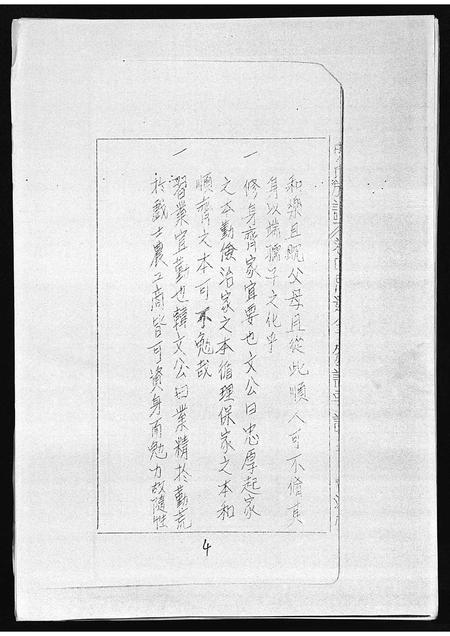 和樂且耽父母且從此順人可不脩其
身以端孺子之化乎
一 修身齊家宜要也文公曰忠厚起家
之本勤儉治家之本循理保家之本和
順齊之本可不勉哉
一 習業宜勤也韓文公曰業精於勤荒
於戲士農工商皆可資身而勉力故隨性
4